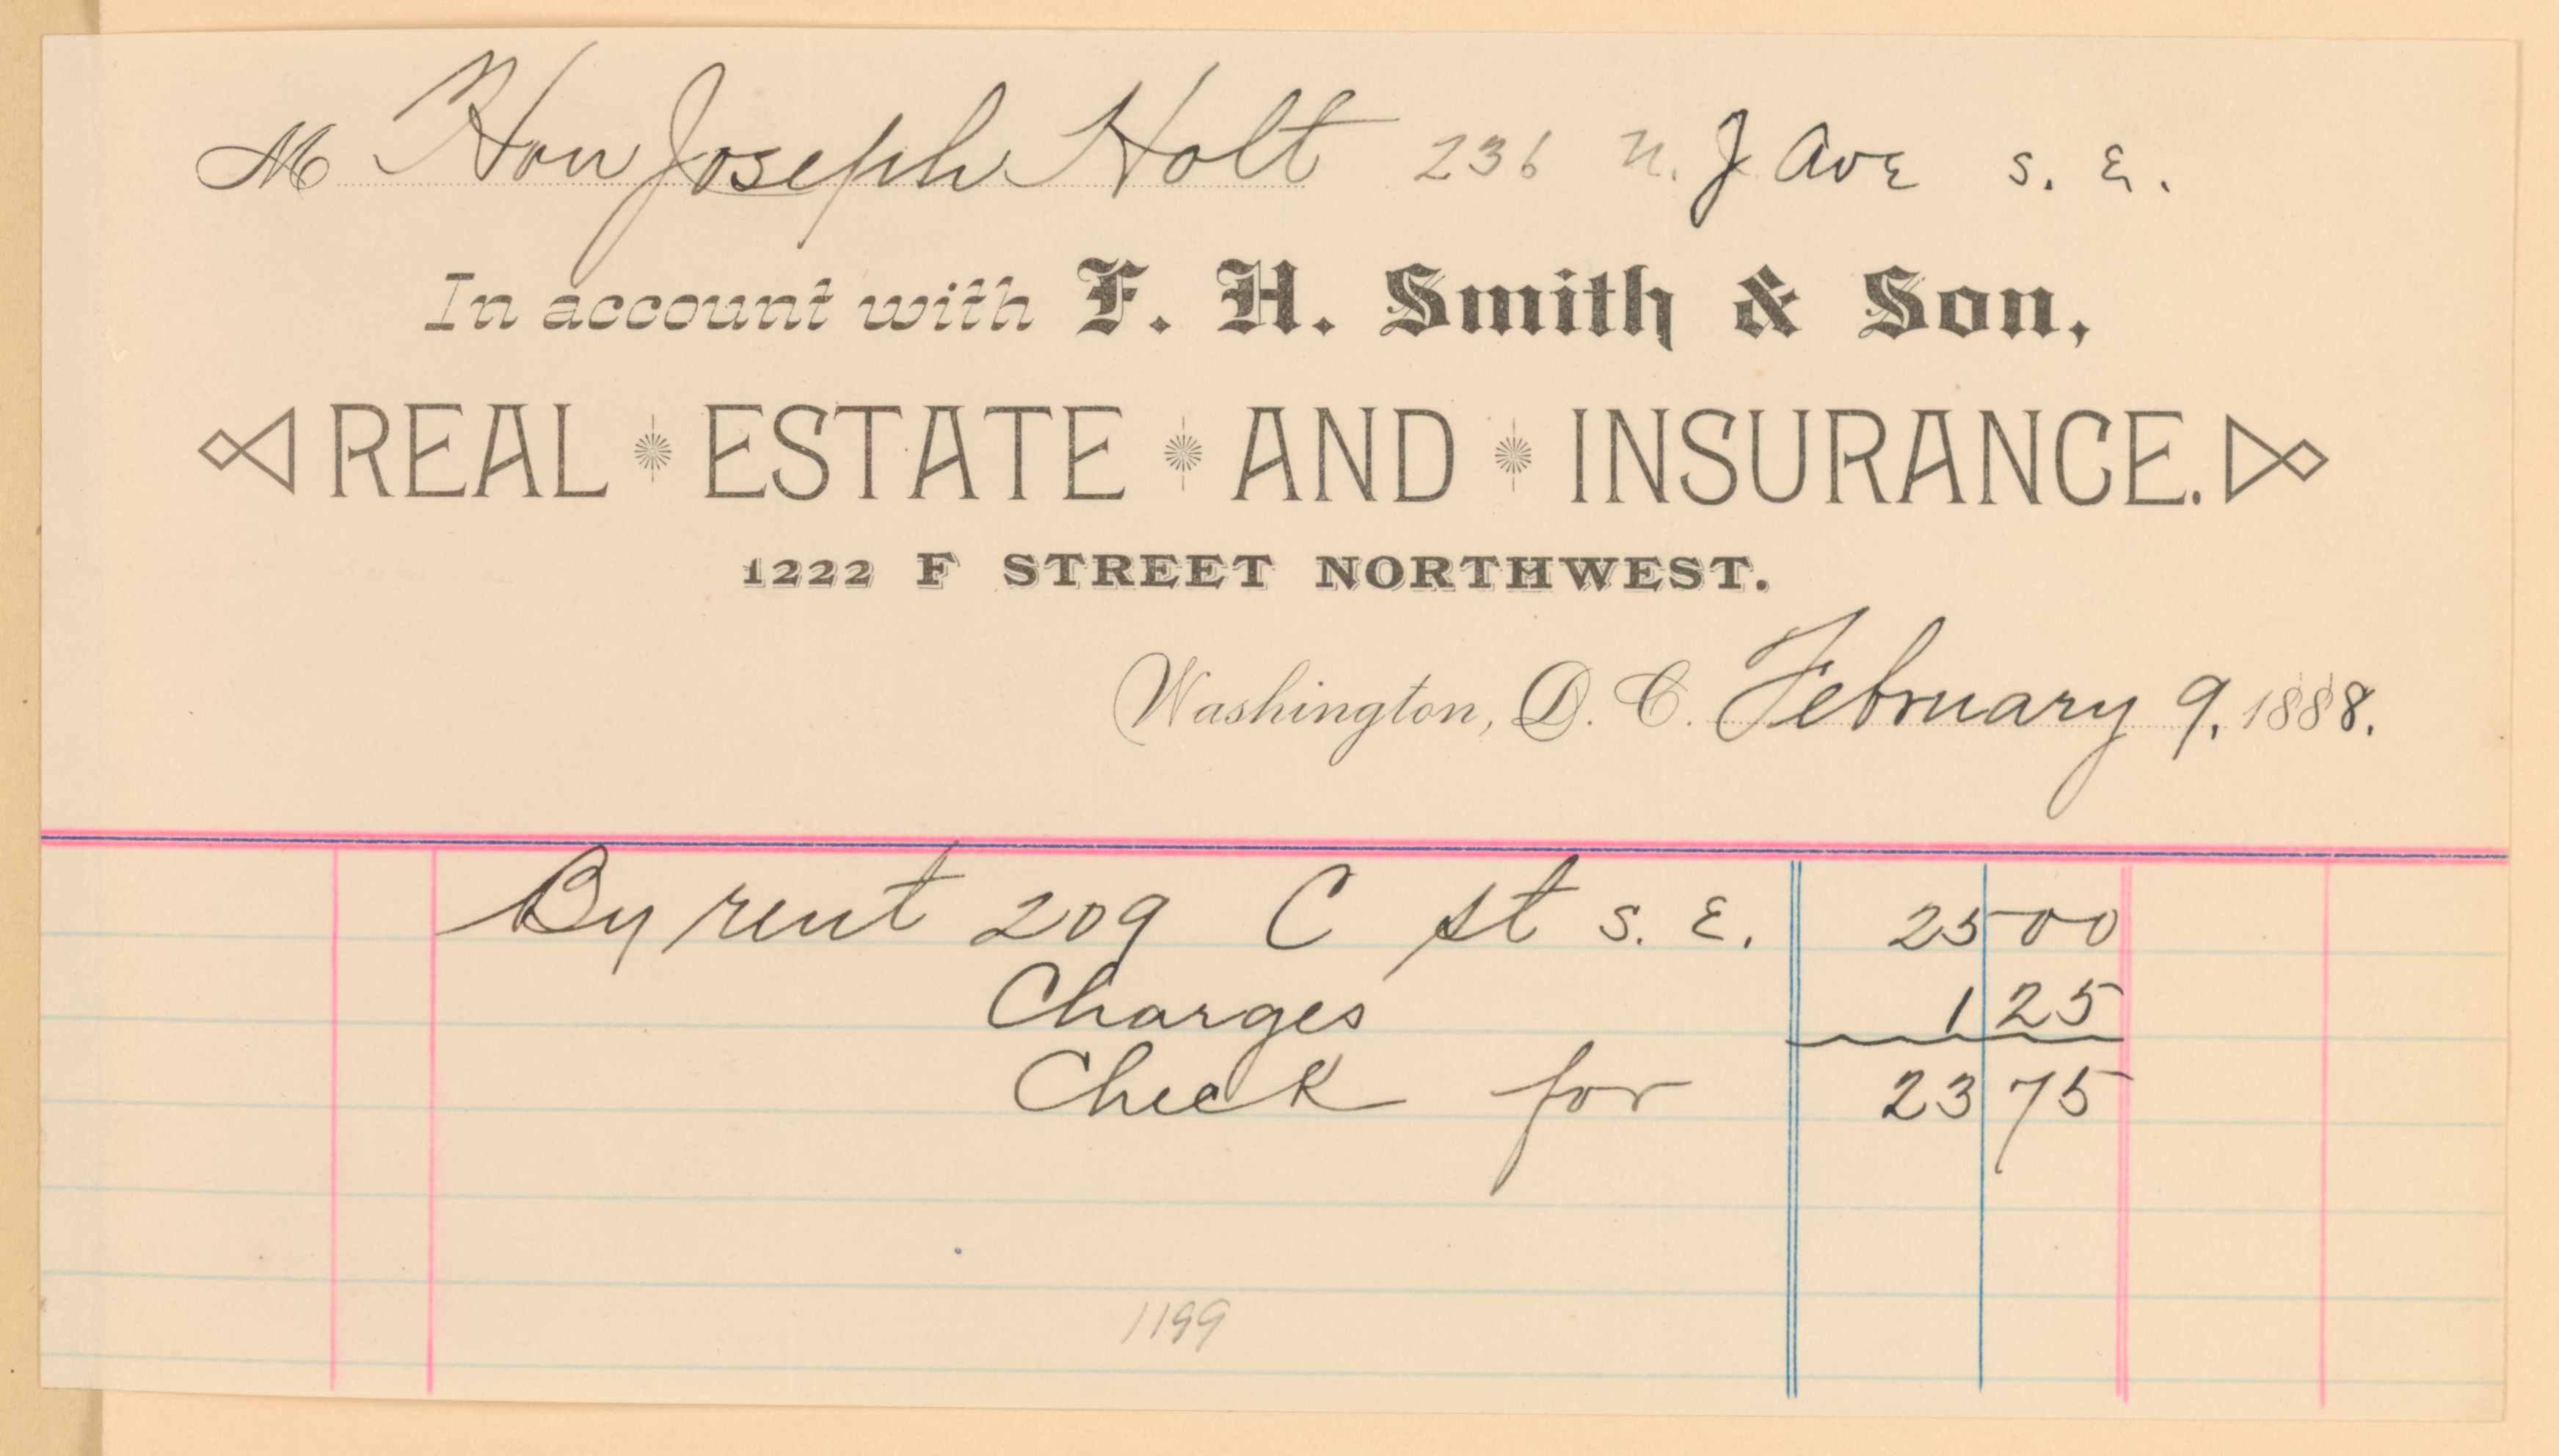 M Hon Joseph Holt 236 N. J Ave S. E.
In account with F. H. Smith & Son,
REAL ESTATE AND INSURANCE.
1222 F STREET NORTHWEST.
Washington, D. C. February 9, 1888.
By rent 209 C st S. E. 25 00
Charges 1 25
Check for 23 75
1199